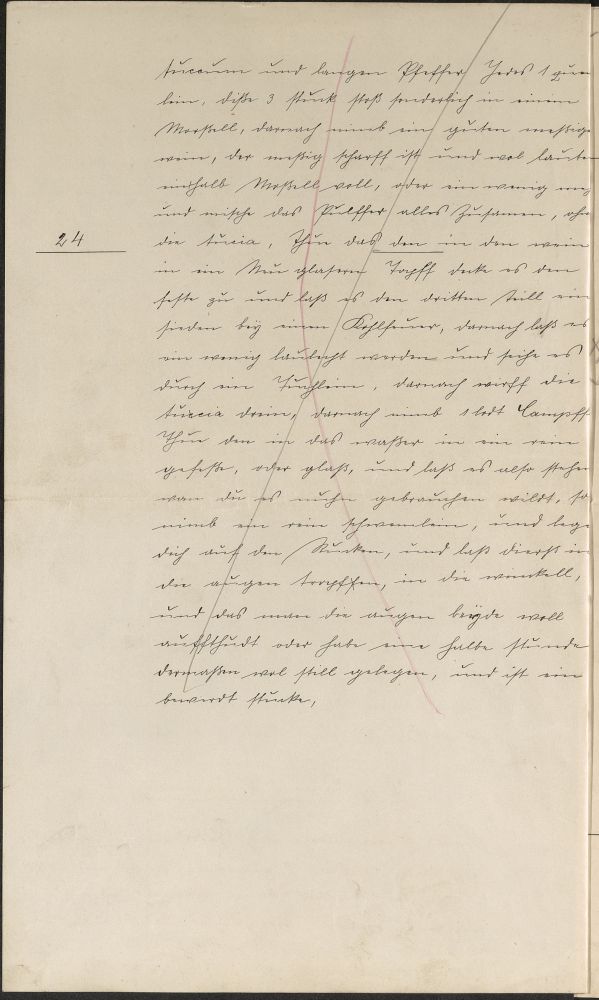 tuccium und langen Pfeffer Jedes 1 quen
lein, diße 3 stuck stoß sonderlich in einem
Morßell, darnach nimb ein guten meßig
wein, der meßig scharff ist und wol lauter
einhalb Moßell voll, oder ein wenig me
und mische das Pulffer alles Zusamen, ohn
24
die tucia, Thue das den in den wein
in ein Neu glasern Topff decke es den
feste zu und laß es den dritten teill ein
sieden bey einem Kohlfeuer, darnach laß es
ein wenig laulicht werden und seihe es
durch ein Tuchlein, darnach wirff die
tuccia drein, darnach nimb 1 lodt Campff
Thue den in das waßer in ein rein
gefeße, oder glaß, und laß es also stehen
wan du es nuhn gebrauchen wildt, so
nimb ein rein schwemlein, und lege
dich auf den Rucken, und laß dierß in
die augen tropffen, in die winckell,
und das man die augen beyde woll
auffthudt oder habe eine halbe stunde
dermaßen wol still gelegen, und ist ein
bewerdt stucke,